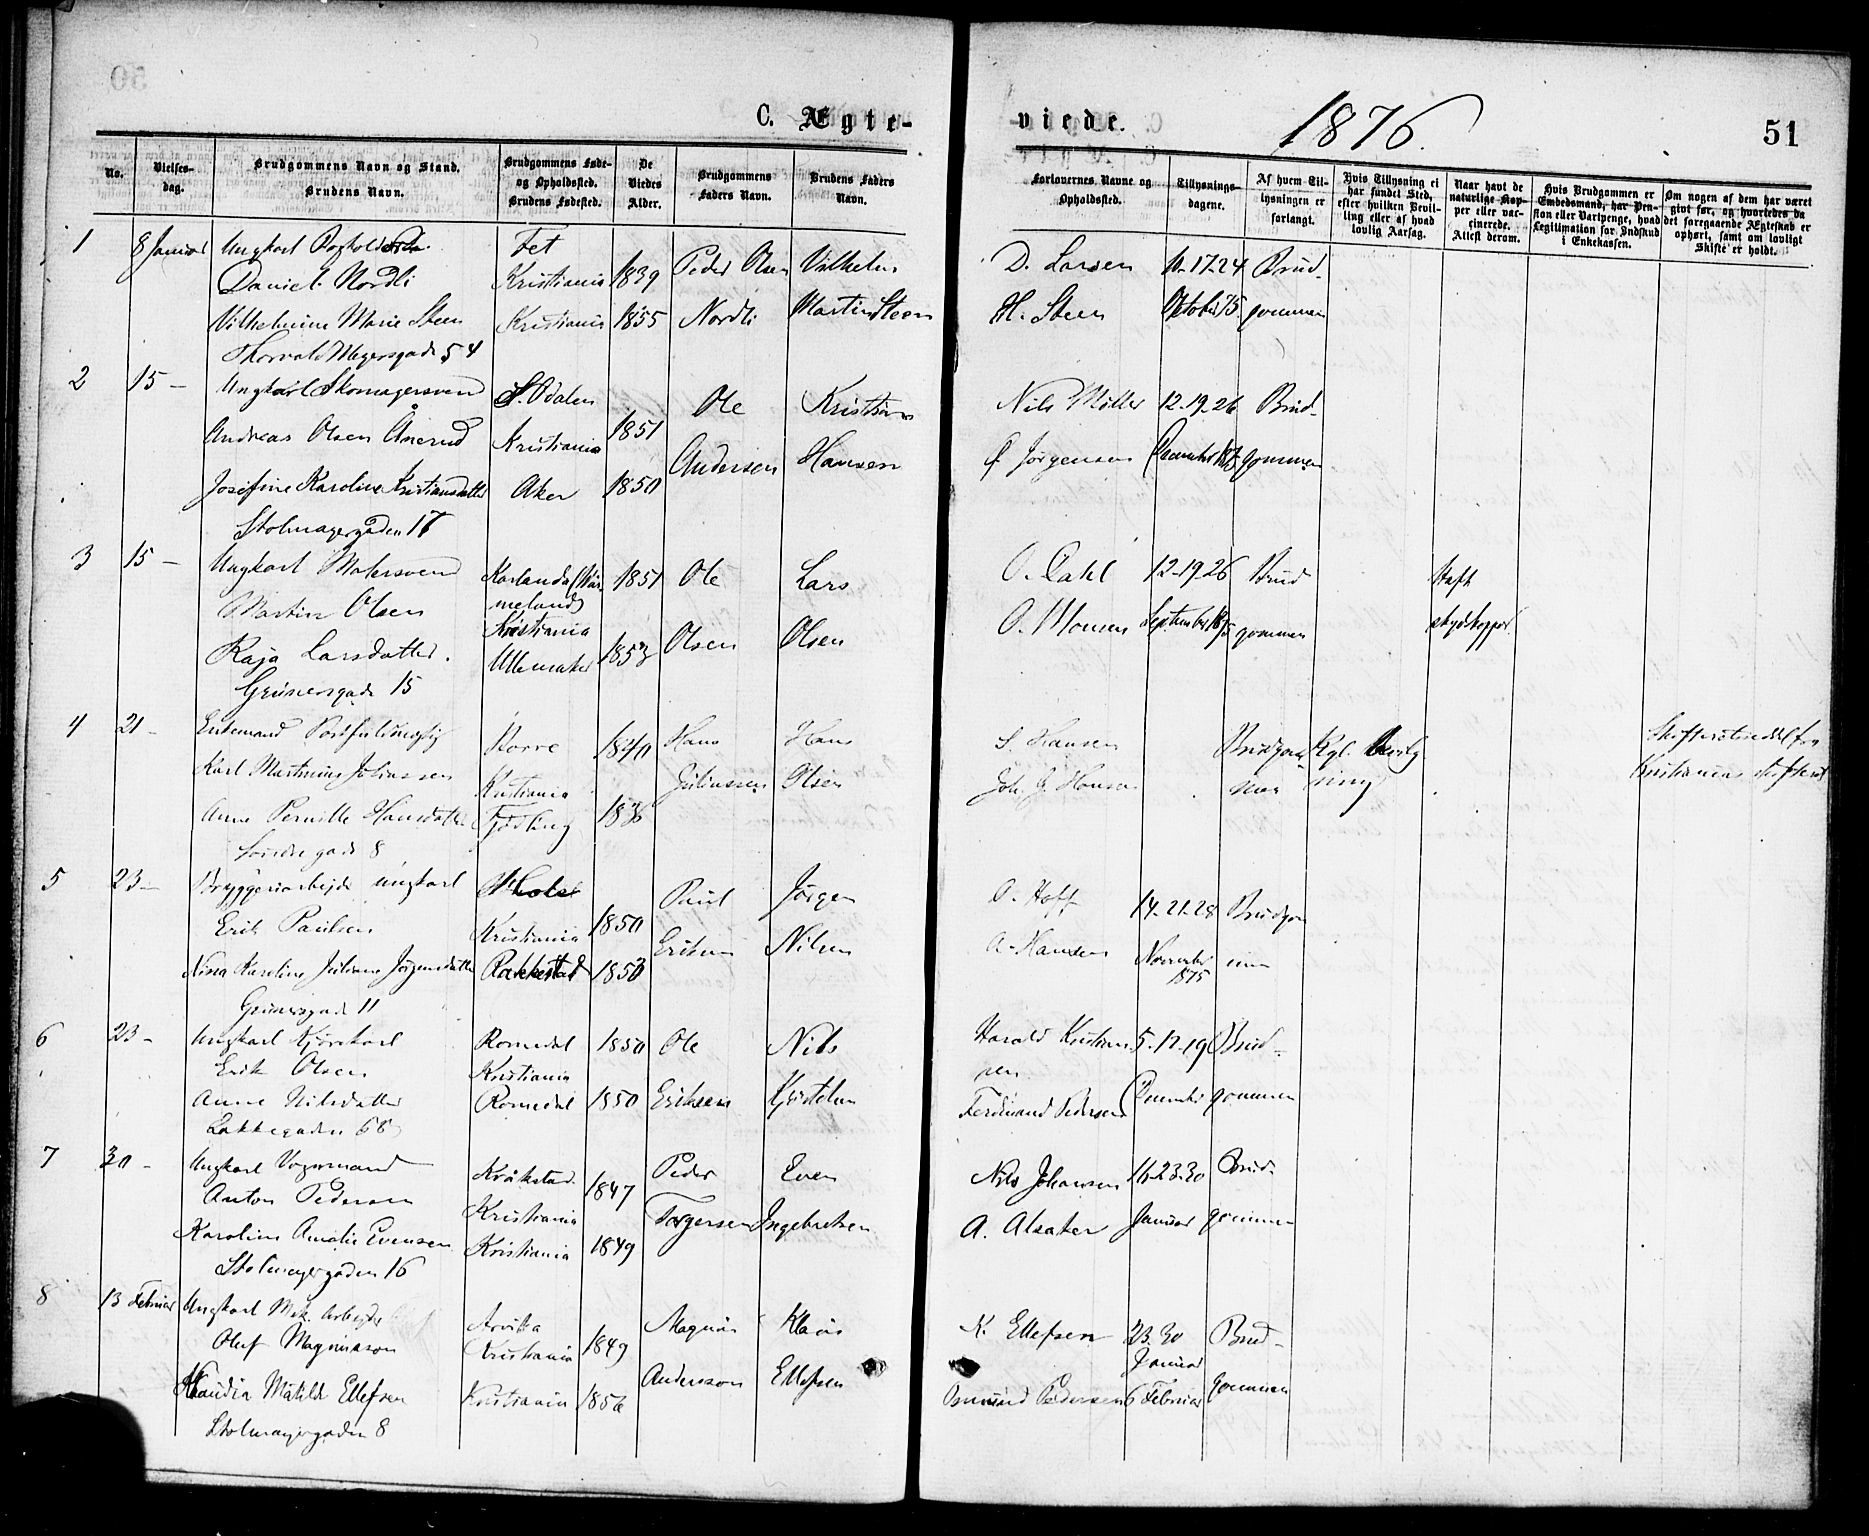 C. Ægte-
viede.
1876.
51
No.
Vielses-dag.
Brudgommens Navn og Stand.
Brudens Navn.
Brudgommens Føde- og Opholdssted.
Brudens Fødested.
De Viedes Alder.
Brudgommens Faders Navn.
Brudens Faders Navn.
Forlovernes Navne og Opholdssted.
Tillysnings-dagene.
Af hvem Til-lysningen er forlangt.
Hvis Tillysning ei har fundet Sted, efter hvilken Bevil-ling eller af hvad lovlig Aarsag.
Naar havt de naturlige Kop-per eller vac-cinerede. Attest derom.
Hvis Brudgommen er Embedsmand, har Pen-sion eller Vartpenge, hvad Legitimation for Indskud i Enkekassen.
Om nogen af dem har været givt før, og hvorledes da det foregaaende Ægteskab er ophørt, samt om lovligt Skifte er holdt.
1 8 Januar Ungkarl Fet
Daniel Nordli Kristiania 1839 Peder Olsen Vilhelm D. Larsen 10-17-24 Brud-
Vilhelmine Marie Steen Kristiania 1855 Nordli Martin Steen H. Steen Oktober 75. gommen
Thorvald Meyersgade 54
2 15 - Ungkarl Skomagersvend S. Odalen Ole Kristian Nils Møller 12-19-26 Brud-
Andreas Olsen Ånerud Kristiania 1851 Andersen Hansen Jørgensen December gommen
Josefine Karoline Kristiansdatter Aker 1850
Stolmagergaden 17
3 15 - Ungkarl Malersvend Karlanda (Vär- 1851 Ole Lars O. Dahl 12-19-26 Brud Havt
Martin Olsen meland)
Kristiania Olsen Olsen O. Monsen September 1875 gommen
Kaja Larsdatter. Ullensaker 1853
Grünersgade 15
4 21 - Enkemand Postfuldmægtig 1840 Hans Hans S. Hansen Brudgom- Kgl. Bevilg Skifteattest fra
Karl Martinius Johnssen Kristiania Olsen Joh. J. Hansen men ning Kristianias Skifteret
Anne Pernille Hansdatter 1836
Søndregade 8
5 23 - Bryggeriarbejder ungkarl Paul Jørgen O. Hoff 14-21-28 Brudgom
Erik Paulsen Kristiania 1850 Eriksen Nilsen A. Hansen November 1875 men
Nina Karoline Juliane Jørgensdatter Rakkestad 1853
Grünersgade 11
6 23 - Ungkarl Kjørekarl Romedal 1850 Ole Nils Harald Kristian- 5-12-19 Brud-
Erik Olsen Kristiania sen
Anne Nilsdatter Romedal 1850 Eriksen Kjristelsen Ferdinand Pedersen December gommen
Lakkegaden 68
7 30 - Ungkarl Vognmand Kråkstad 1847 Peder Even Nils Johansen 16-23-30 Brud-
Anton Pedersen Kristiania Torgersen Ingebretsen A. Alsaker Januar gommen
Karoline Amalie Evensen Kristiania 1849
Stolmagergaden 16
8 13 Februar Ungkarl Mek. Arbejder Arvika Magnus Klaus K. Ellefsen 23-30 Brud-
Oluf Magnusson Kristiania 1849 Januar
Klaudia Matilde Ellefsen Kristiania 1856 Andersson Ellefsen Pedersen 6 Februar gommen
Stolmagergaden 8